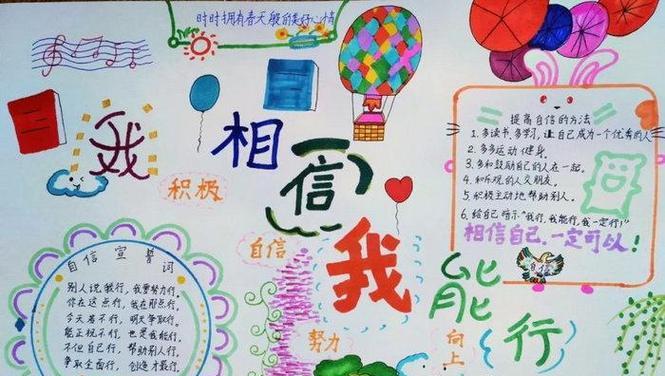 时时拥有春天般的美好心情
我相信我能行
积极
自信
努力
向上
提高自信的方法
1. 多读书、多学习,让自己成为一个优秀的人
2. 多多运动健身。
3. 多和鼓励自己的人在一起。
4. 和乐观的人交朋友。
5. 积极主动地帮助别人。
6. 给自己暗示“我行,我能行,我一定行!”
相信自己,一定可以!
自信
自信宣誓词
别人说我行,我要努力行。
你在这点行,我在那点行。
今天若不行,明天争取行。
能正视不行,也是我能行。
不但自己行,帮助别人行。
争取全面行,创造才最行。